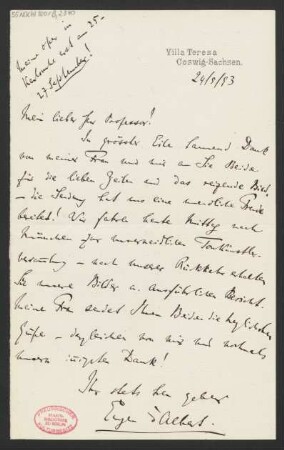 Meine Oper in
Karlsruhe erst am 25-
27 September!
Villa Teresa
Coswig-Sachsen.
24/5/93
Mein lieber Herr Professor!
In grösster Eile tausend Dank
von meiner Frau und mir an Sie Beide
für die lieben Zeilen und das reizende Bild
– die Sendung hat uns eine unendliche Freude
bereitet! Wir fahren heute Mittag nach
München zur unvermeidlichen Tonkünstler-
versammlung – nach unserer Rückkehr erhalten
Sie unsere Bilder u. ausführlichen Bericht.
Meine Frau sendet Ihnen Beiden die herzlichsten
Grüße – desgleichen von mir und nochmals
unsern innigsten Dank!
Ihr stets treu ergebener
Eugen d'Albert.